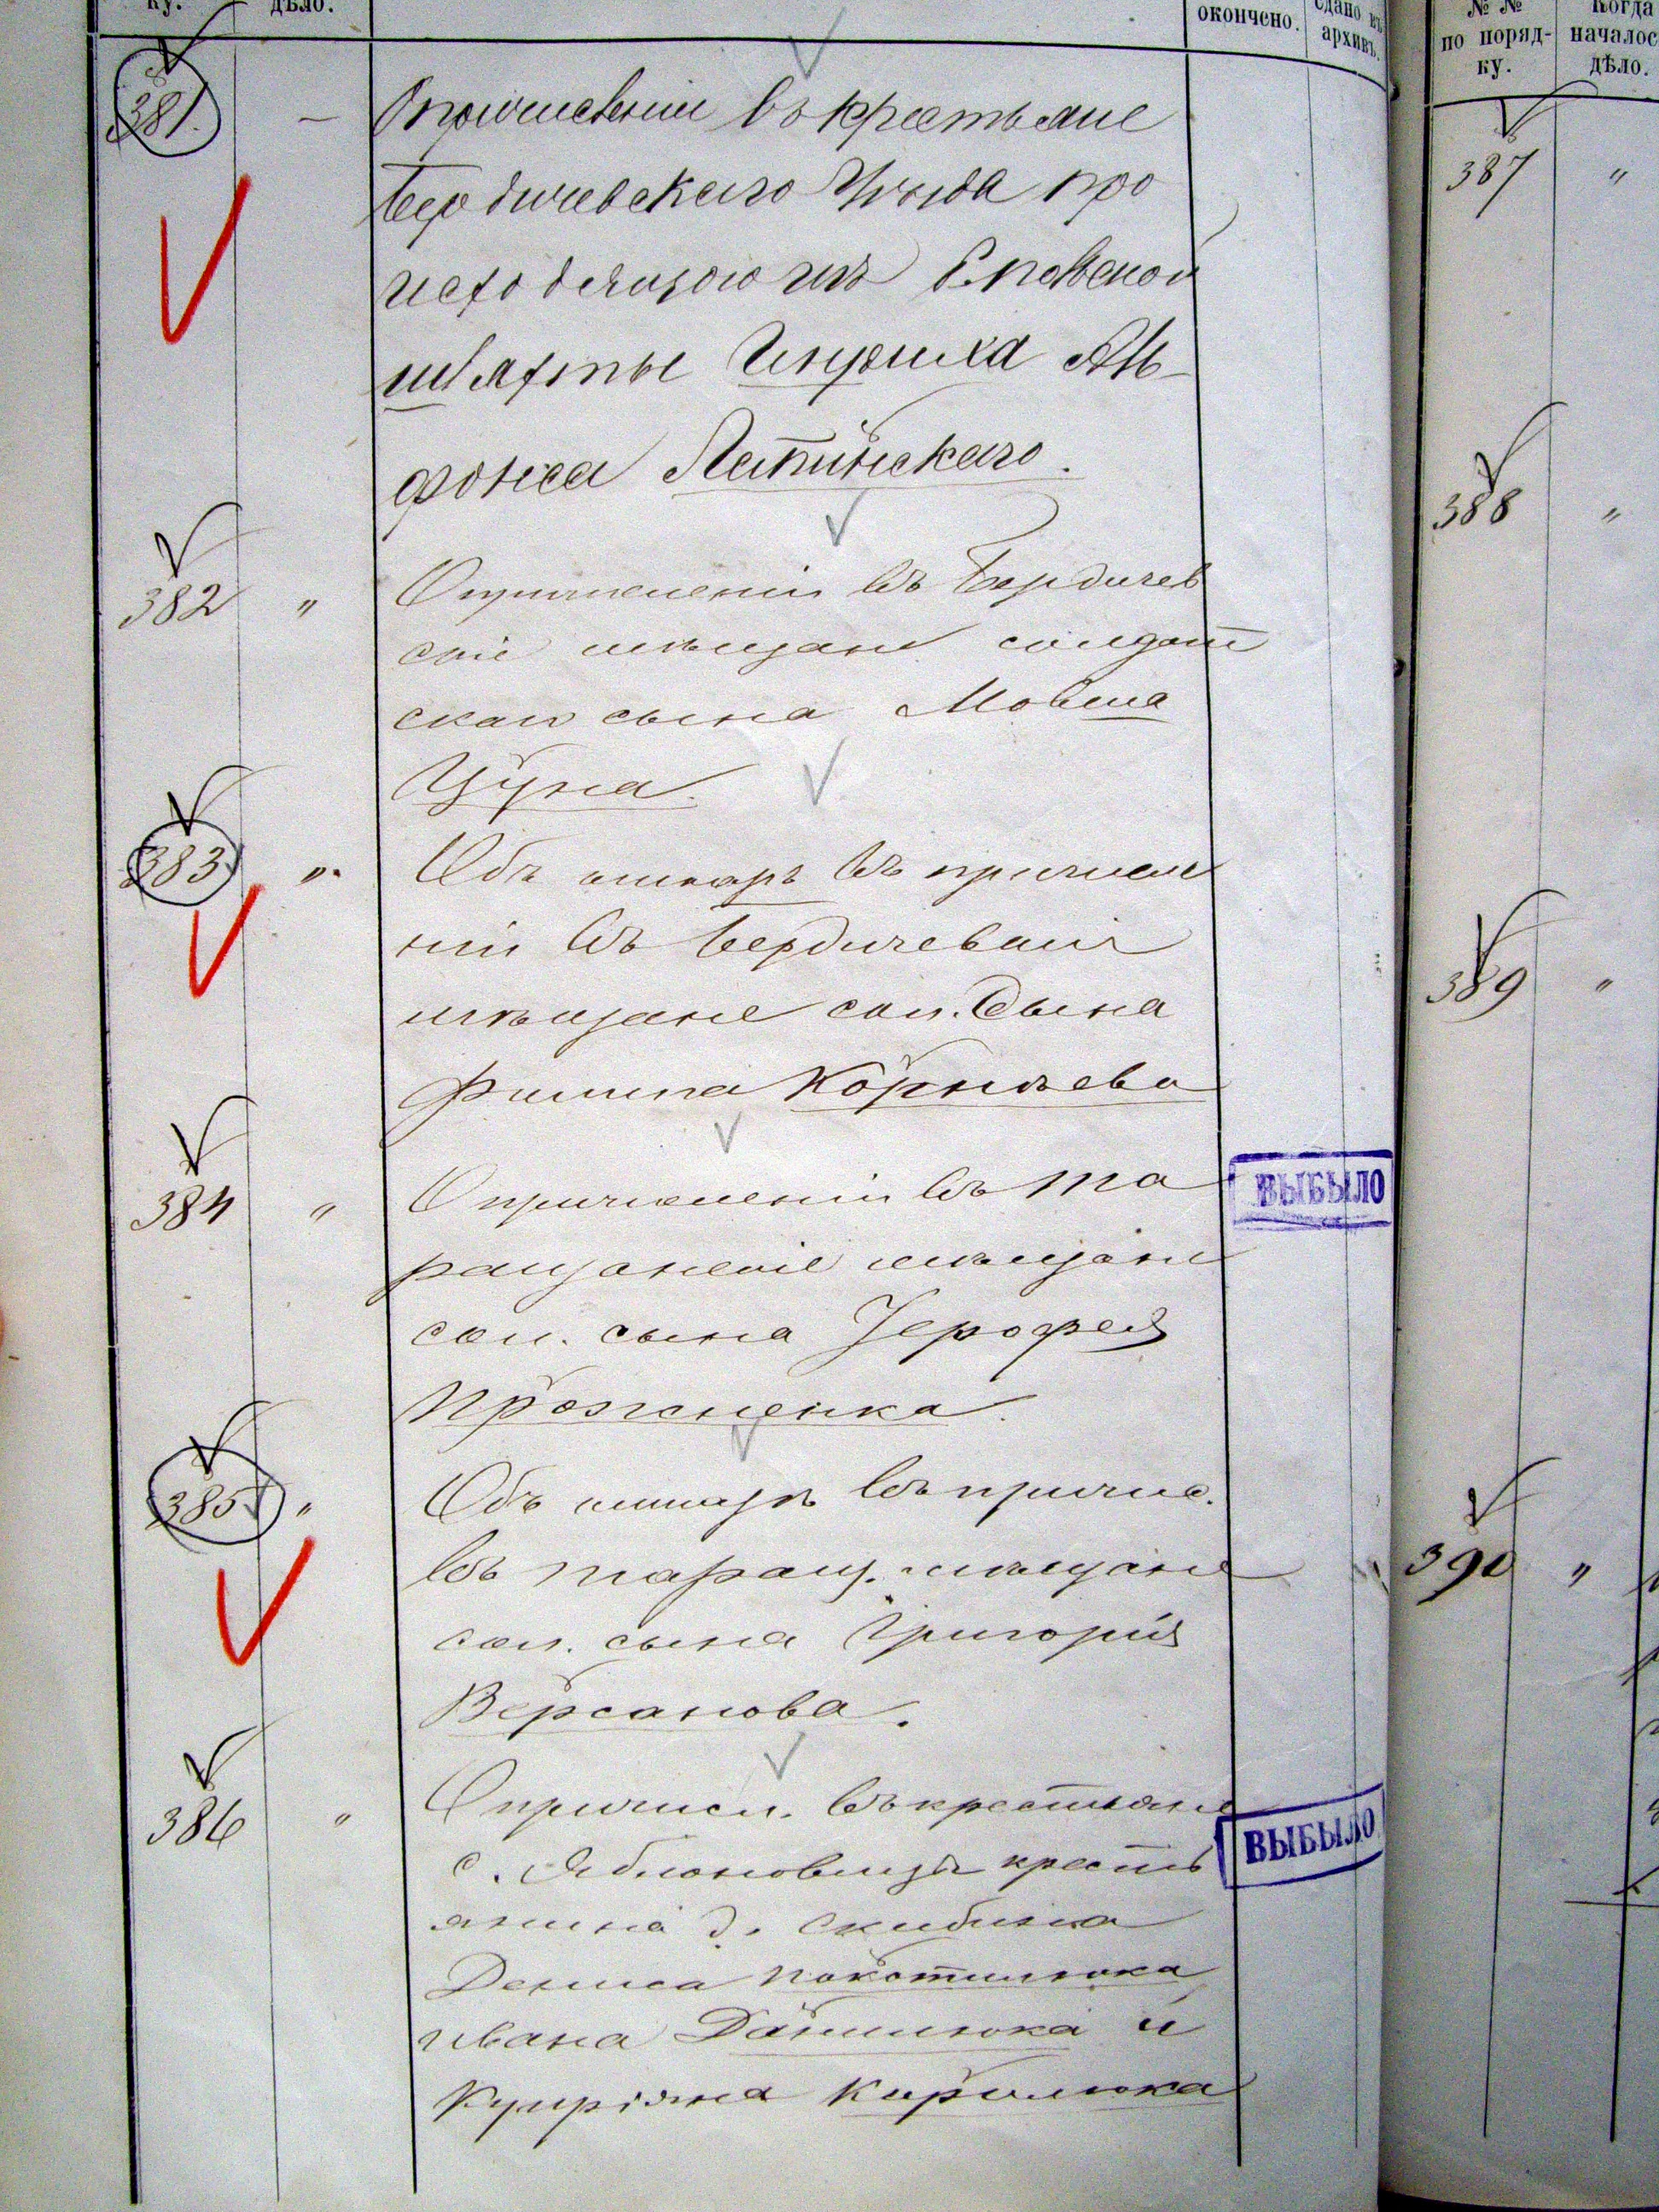 ку.
дѣло.
окончено.
Сдано въ
архивъ.
381.
О причисленіи въ крестьяне
Бердичевскаго Уѣзда про
исходящаго изъ
шляхты Генриха Аль
фонса Лапинскаго.
382 "
О причисленіи въ Бердичев
скіе мѣщане солдат
скаго сына Мовша
Цуна.
383 "
Объ отказѣ въ причисле
ніи въ Бердичевскіе
мѣщане сол. сына
Филипа Корнѣева
384 "
О причисленіи въ та
ращанскіе мѣщане
сол. сына Іерофея
ВЫБЫЛО
385 "
Объ отказѣ въ причис.
въ таращ. мѣщане
сол. сына Григорія
Версанова.
386 "
О причисл. въ крестьяне
с. Яблоновица кресть
янина д. Скибина
Дениса Покотилюка,
Ивана Данилюка и
Купріяна Кирилюка
ВЫБЫЛО
№ №
по поряд-
ку.
Когда
началос
дѣло.
387 "
388 "
389 "
390 "